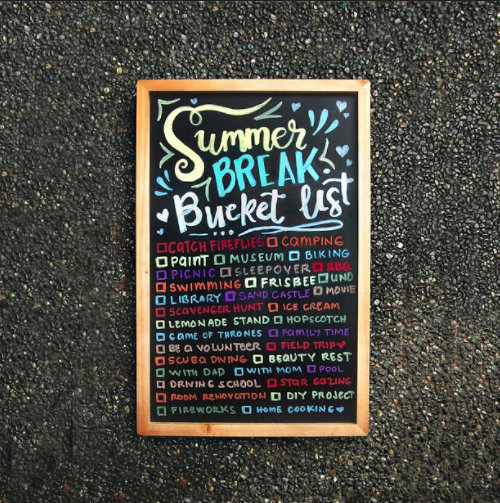 Summer
BREAK
Bucket list
CATCH FIREFLIES CAMPING
PAINT MUSEUM BIKING
PICNIC SLEEPOVER BBQ
SWIMMING FRISBEE UNO
LIBRARY SAND CASTLE MOVIE
SCAVENGER HUNT ICE CREAM
LEMONADE STAND HOPSCOTCH
GAME OF THRONES FAMILY TIME
BE A VOLUNTEER FIELD TRIP
SCUBA DIVING BEAUTY REST
WITH DAD WITH MOM POOL
DRIVING SCHOOL STAR GAZING
ROOM RENOVATION DIY PROJECT
FIREWORKS HOME COOKING